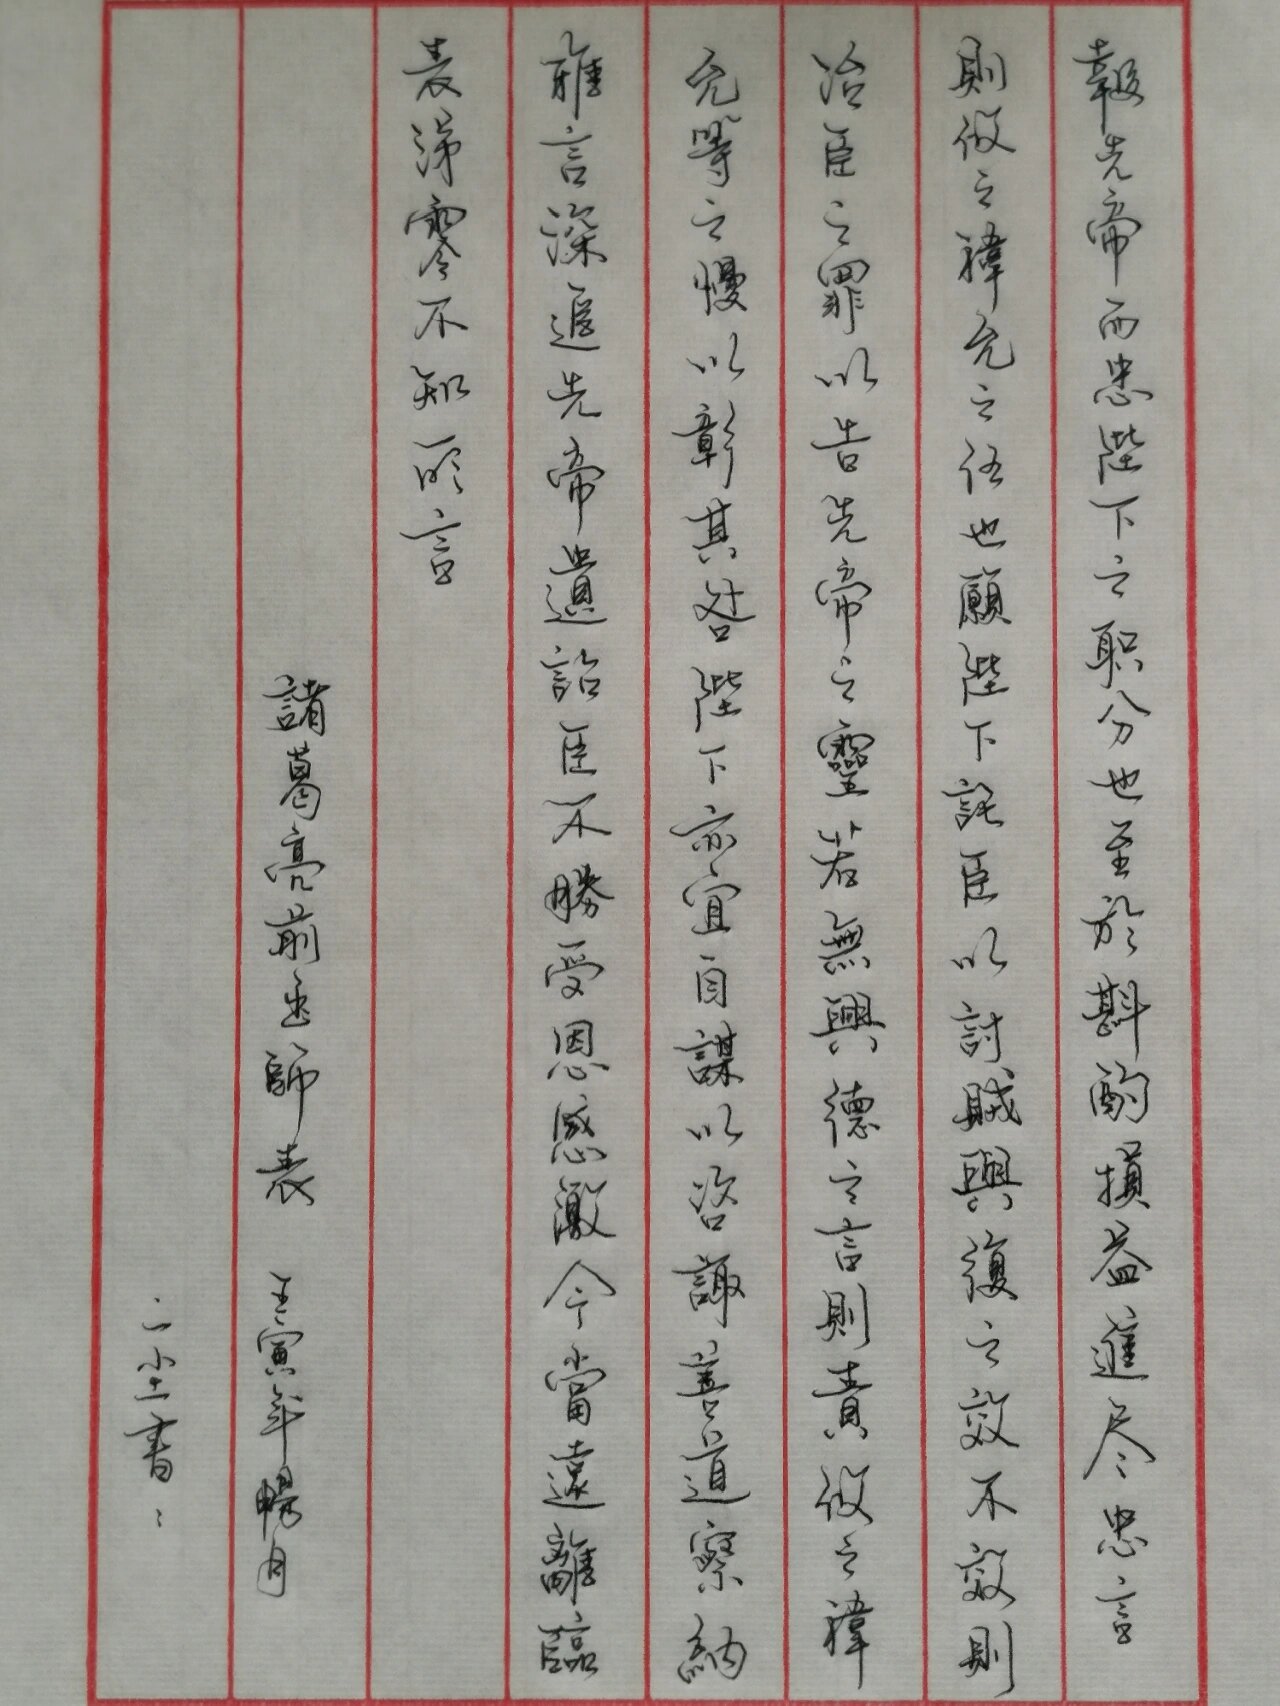 報先帝而忠陛下之职分也至於斟酌損益進尽忠言
則攸之禕允之任也願陛下託臣以討賊興復之效不效則
治臣之罪以告先帝之靈若無興德之言則責攸之禕
允等之慢以彰其咎陛下亦宜自謀以咨諏善道察納
雅言深追先帝遺詔臣不勝受恩感激今當遠離臨
表涕零不知所言
諸葛亮前出師表 壬寅年暢月
二尘書